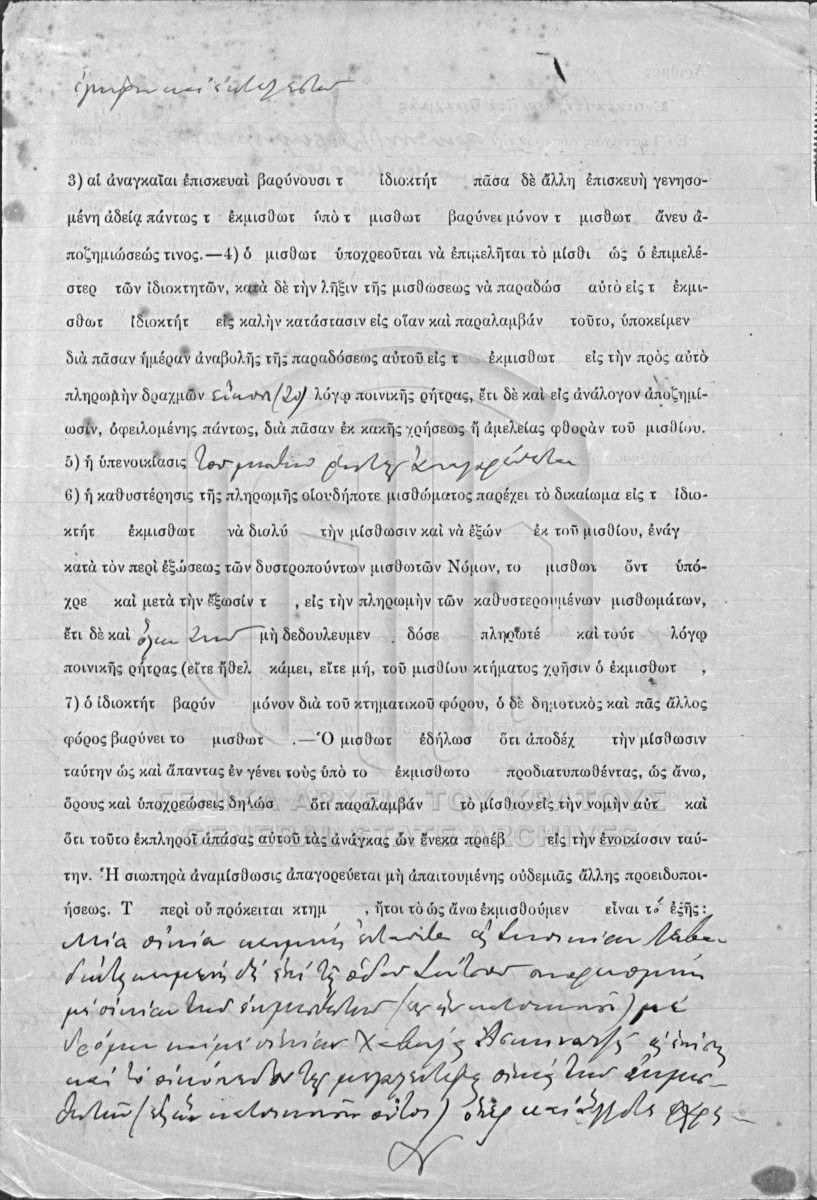 3) αἱ ἀναγκαῖαι ἐπισκευαὶ βαρύνουσι τ ἰδιοκτήτ πᾶσα δὲ ἄλλη ἐπισκευὴ γενησο-
μένη ἀδείᾳ πάντως τ ἐκμισθωτ ὑπὸ τ μισθωτ βαρύνει μόνον τ μισθωτ ἄνευ ἀ-
ποζημιώσεώς τινος.—4) ὁ μισθωτ ὑποχρεοῦται νὰ ἐπιμελῆται τὸ μίσθι ὡς ὁ ἐπιμελέ-
στερ τῶν ἰδιοκτητῶν, κατὰ δὲ τὴν λῆξιν τῆς μισθώσεως νὰ παραδώσ αὐτὸ εἰς τ ἐκμι-
σθωτ ἰδιοκτήτ εἰς καλὴν κατάστασιν εἰς οἵαν καὶ παραλαμβάν τοῦτο, ὑποκείμεν
διὰ πᾶσαν ἡμέραν ἀναβολῆς τῆς παραδόσεως αὐτοῦ εἰς τ ἐκμισθωτ εἰς τὴν πρὸς αὐτὸ
πληρωμὴν δραχμῶν εἴκοσι (20) λόγῳ ποινικῆς ρήτρας, ἔτι δὲ καὶ εἰς ἀνάλογον ἀποζημί-
ωσιν, ὀφειλομένης πάντως, διὰ πᾶσαν ἐκ κακῆς χρήσεως ἢ ἀμελείας φθορὰν τοῦ μισθίου.
5) ἡ ὑπενοικίασις τοῦ μισθίου ἀπαγορεύεται
6) ἡ καθυστέρησις τῆς πληρωμῆς οἱουδήποτε μισθώματος παρέχει τὸ δικαίωμα εἰς τ ἰδιο-
κτήτ ἐκμισθωτ νὰ διαλύ τὴν μίσθωσιν καὶ νὰ ἐξών ἐκ τοῦ μισθίου, ἐνάγ
κατὰ τὸν περὶ ἐξώσεως τῶν δυστροπούντων μισθωτῶν Νόμον, το μισθω ὄντ ὑπό-
χρε καὶ μετὰ τὴν ἔξωσίν τ , εἰς τὴν πληρωμὴν τῶν καθυστερουμένων μισθωμάτων,
ἔτι δὲ καὶ μὴ δεδουλευμεν δόσε πληρωτέ καὶ τούτ λόγῳ
ποινικῆς ρήτρας (εἴτε ἤθελ κάμει, εἴτε μή, τοῦ μισθίου κτήματος χρῆσιν ὁ ἐκμισθωτ ,
7) ὁ ἰδιοκτήτ βαρύν μόνον διὰ τοῦ κτηματικοῦ φόρου, ὁ δὲ δημοτικὸς καὶ πᾶς ἄλλος
φόρος βαρύνει το μισθωτ .—Ὁ μισθωτ ἐδήλωσ ὅτι ἀποδέχ τὴν μίσθωσιν
ταύτην ὡς καὶ ἅπαντας ἐν γένει τοὺς ὑπὸ το ἐκμισθωτο προδιατυπωθέντας, ὡς ἄνω,
ὅρους καὶ ὑποχρεώσεις δηλώσ ὅτι παραλαμβάν τὸ μίσθιον εἰς τὴν νομὴν αὑτ καὶ
ὅτι τοῦτο ἐκπληροῖ ἁπάσας αὐτοῦ τὰς ἀνάγκας ὧν ἕνεκα προέβ εἰς τὴν ἐνοικίασιν ταύ-
την. Ἡ σιωπηρὰ ἀναμίσθωσις ἀπαγορεύεται μὴ ἀπαιτουμένης οὐδεμιᾶς ἄλλης προειδοποι-
ήσεως. Τ περὶ οὗ πρόκειται κτημ , ἤτοι τὸ ὡς ἄνω ἐκμισθούμεν εἶναι τὸ ἑξῆς:
Μία οἰκία κειμένη
ἐπὶ τῆς ὁδοῦ
μὲ οἰκίαν τῶν ἐκμισθωτῶν μὲ
δρόμον καὶ μὲ οἰκίαν
καὶ τὸ οἰκόπεδον τῆς μεγαλειτέρας οἰκίας τῶν ἐκμισ-
θωτῶν
ΓΕΝΙΚΑ ΑΡΧΕΙΑ ΤΟΥ ΚΡΑΤΟΥΣ
GENERAL STATE ARCHIVES